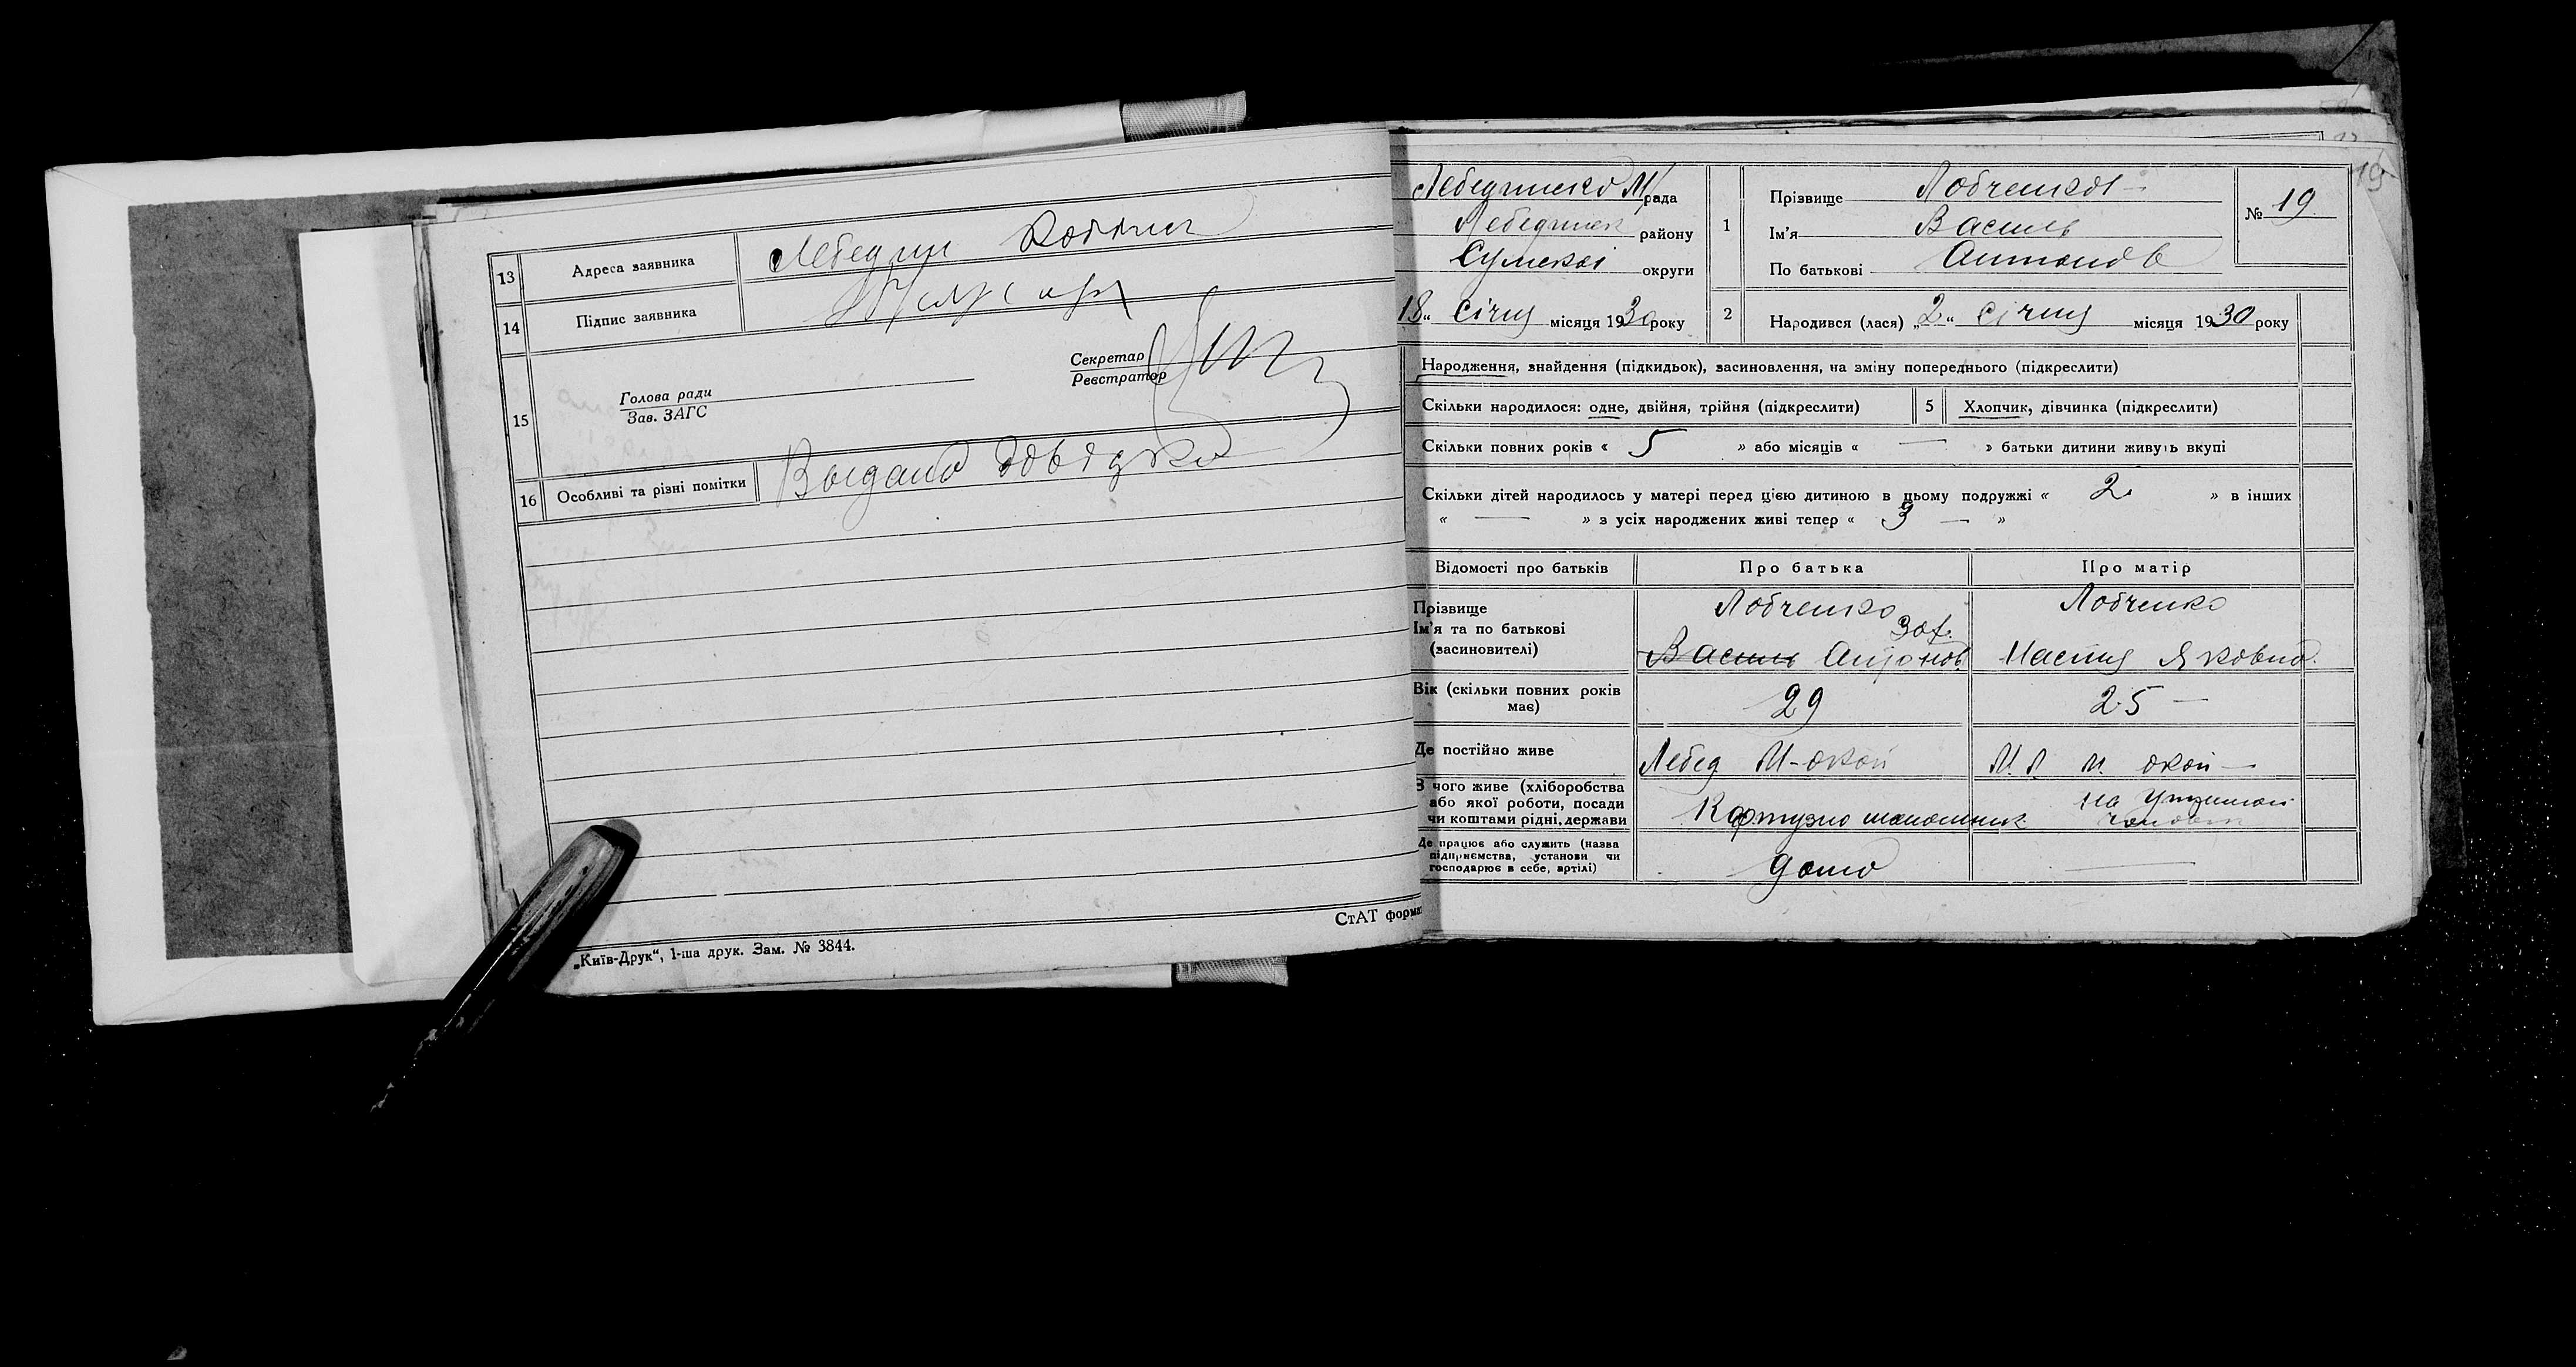 13 Адреса заявника Лебедин
14 Підпис заявника
15 Голова ради
Зав. ЗАГС
Секретар
Реєстратор
16 Особливі та різні помітки Выдано довідка
„Київ-Друк“, 1-ша друк. Зам. № 3844.
СтАТ форма
19
Лебединсько М/рада
Лебединск району
Сумської округи
1 Прізвище Лобченко
Ім'я Василь
По батькові Антонов
№ 19
18 „ Січня місяця 1930 року
2 Народився (лася) „2“ Січня місяця 1930 року
Народження, знайдення (підкидьок), засиновлення, на зміну попереднього (підкреслити)
Скільки народилося: одне, двійня, трійня (підкреслити) 5 Хлопчик, дівчинка (підкреслити)
Скільки повних років « 5 » або місяців « — » батьки дитини живуть вкупі
Скільки дітей народилось у матері перед цією дитиною в цьому подружжі « 2 » в інших
« — » з усіх народжених живі тепер « 3 — »
Відомості про батьків Про батька Про матір
Прізвище Лобченко Лобченко
Ім'я та по батькові
(засиновителі) Василь Антонов Настя Яковна
Вік (скільки повних років
має) 29 25 —
Де постійно живе Лебед
З чого живе (хліборобства
або якої роботи, посади
чи коштами рідні, держави Картузно шапошник
Де працює або служить (назва
підприємства, установи чи
господарює в себе, артілі) дома —